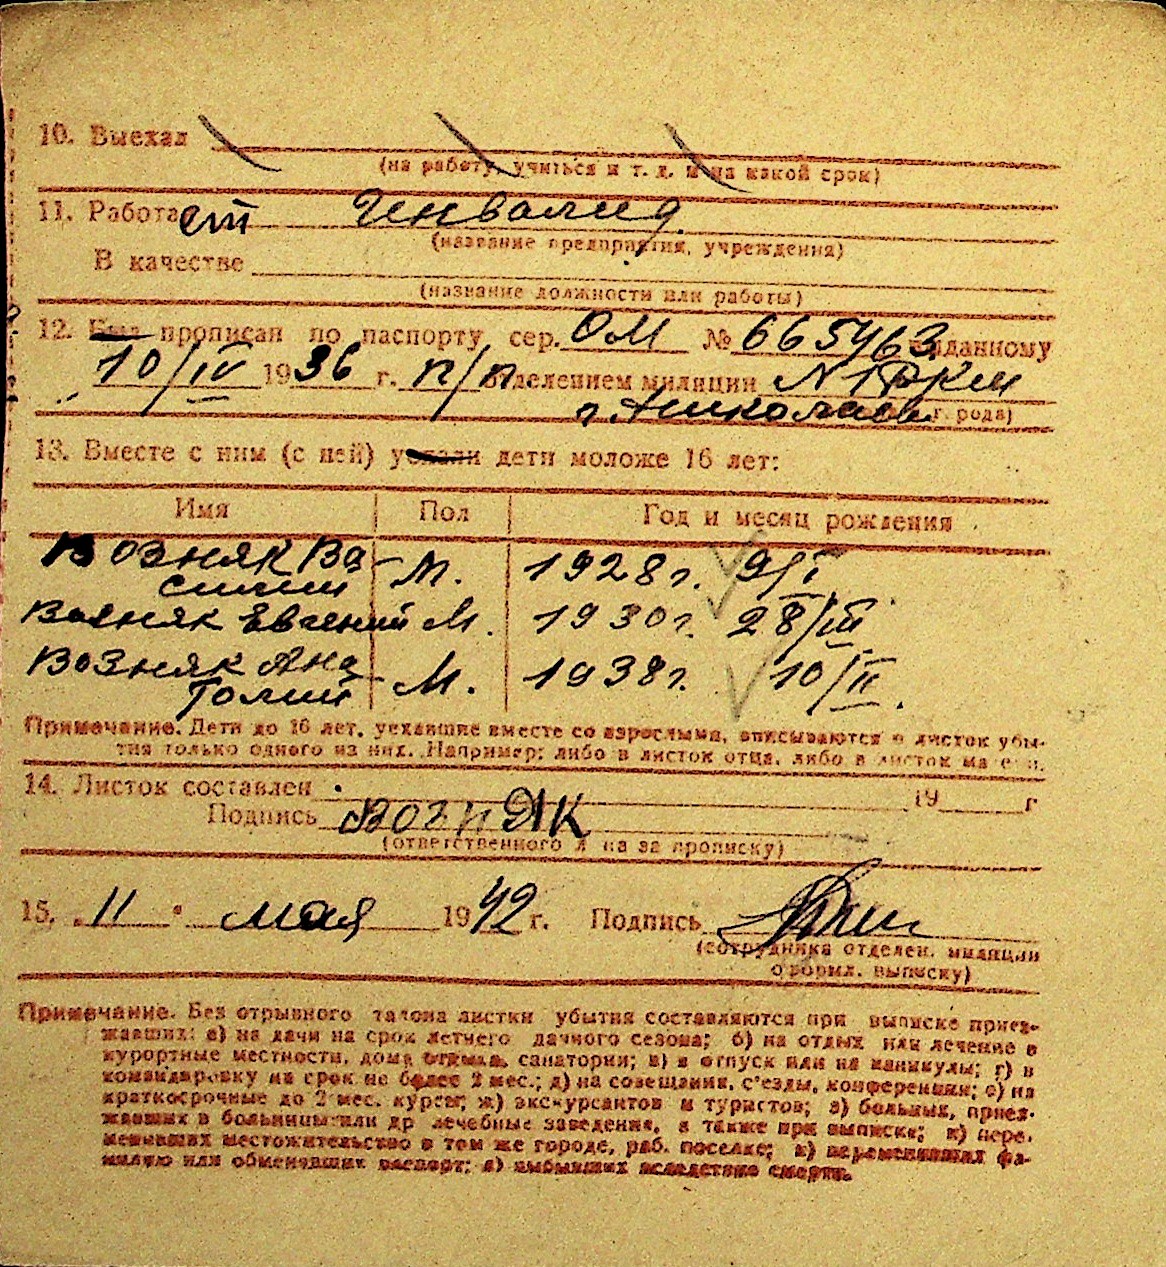 10. Выехал
(на работу, учиться и т. д. и на какой срок)
11. Работает Инвалид
(название предприятия, учреждения)
В качестве
(название должности или работы)
12. Был прописан по паспорту сер. ОМ № 665463 выданному
10/IV 1936 г. п/п отделением милиции N 1 РКМ
г. Николаев г. рода)
13. Вместе с ним (с ней) уехали дети моложе 16 лет:
Имя Пол Год и месяц рождения
Возняк Ва
силий М. 1928 г. 9/I
Возняк Евгений М. 1930 г. 28/III
Возняк Ана
толий М. 1938 г. 10/II.
Примечание. Дети до 16 лет, уехавшие вместе со взрослыми, вписываются в листок убы-
тия только одного из них. Например: либо в листок отца, либо в листок матери.
14. Листок составлен 19 г
Подпись Возняк
(ответственного л на за прописку)
15. "11" мая 1942 г. Подпись
(сотрудника отделен. милиции
оформл. выписку)
Примечание. Без отрывного талона листки убытия составляются при выписке приез-
жавших: а) на дачи на срок летнего дачного сезона; б) на отдых или лечение в
курортные местности, дома отдыха, санатории; в) в отпуск или на каникулы; г) в
командировку на срок не более 2 мес.; д) на совещания, с'езды, конференции; е) на
краткосрочные до 2 мес. курсы; ж) экскурсантов и туристов; з) больных, приез-
жавших в больницы или др лечебные заведения, а также при выписке; и) пере-
менивших местожительство в том же городе, раб. поселке; к) переменивших фа-
милию или обменявших паспорт; л) выбывших вследствие смерти.